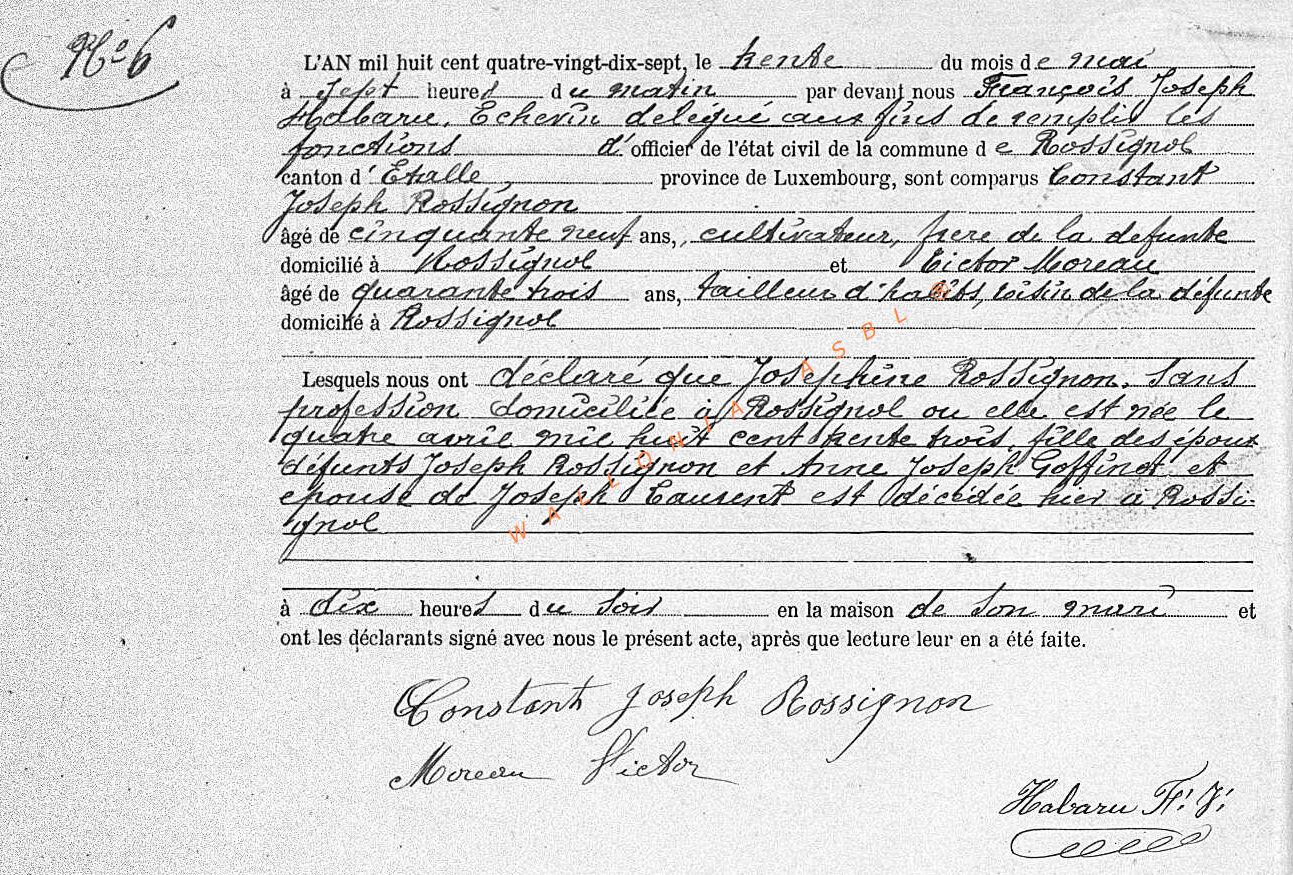 No 6
L'AN mil huit cent quatre-vingt-dix-sept, le trente du mois de mai
à sept heures du matin par devant nous François Joseph
Habaru, Echevin délégué aux fins de remplir les
fonctions d'officier de l'état civil de la commune de Rossignol
canton d'Etalle, province de Luxembourg, sont comparus Constant
Joseph Rossignon
âgé de cinquante neuf ans, cultivateur, frere de la defunte
domicilié à Rossignol et Victor Moreau
âgé de quarante trois ans, tailleur d'habits, voisin de la défunte
domicilié à Rossignol
Lesquels nous ont déclaré que Josephine Rossignon, sans
profession domiciliée à Rossignol ou elle est née le
quatre avril mil huit cent trente trois, fille des époux
défunts Joseph Rossignon et Anne Joseph Goffinet et
epouse de Joseph Laurent est décédée hier à Rossi-
gnol
à dix heures du soir en la maison de son mari et
ont les déclarants signé avec nous le présent acte, après que lecture leur en a été faite.
Constant Joseph Rossignon
Moreau Victor
Habaru F. J.
WALLONIA ASBL